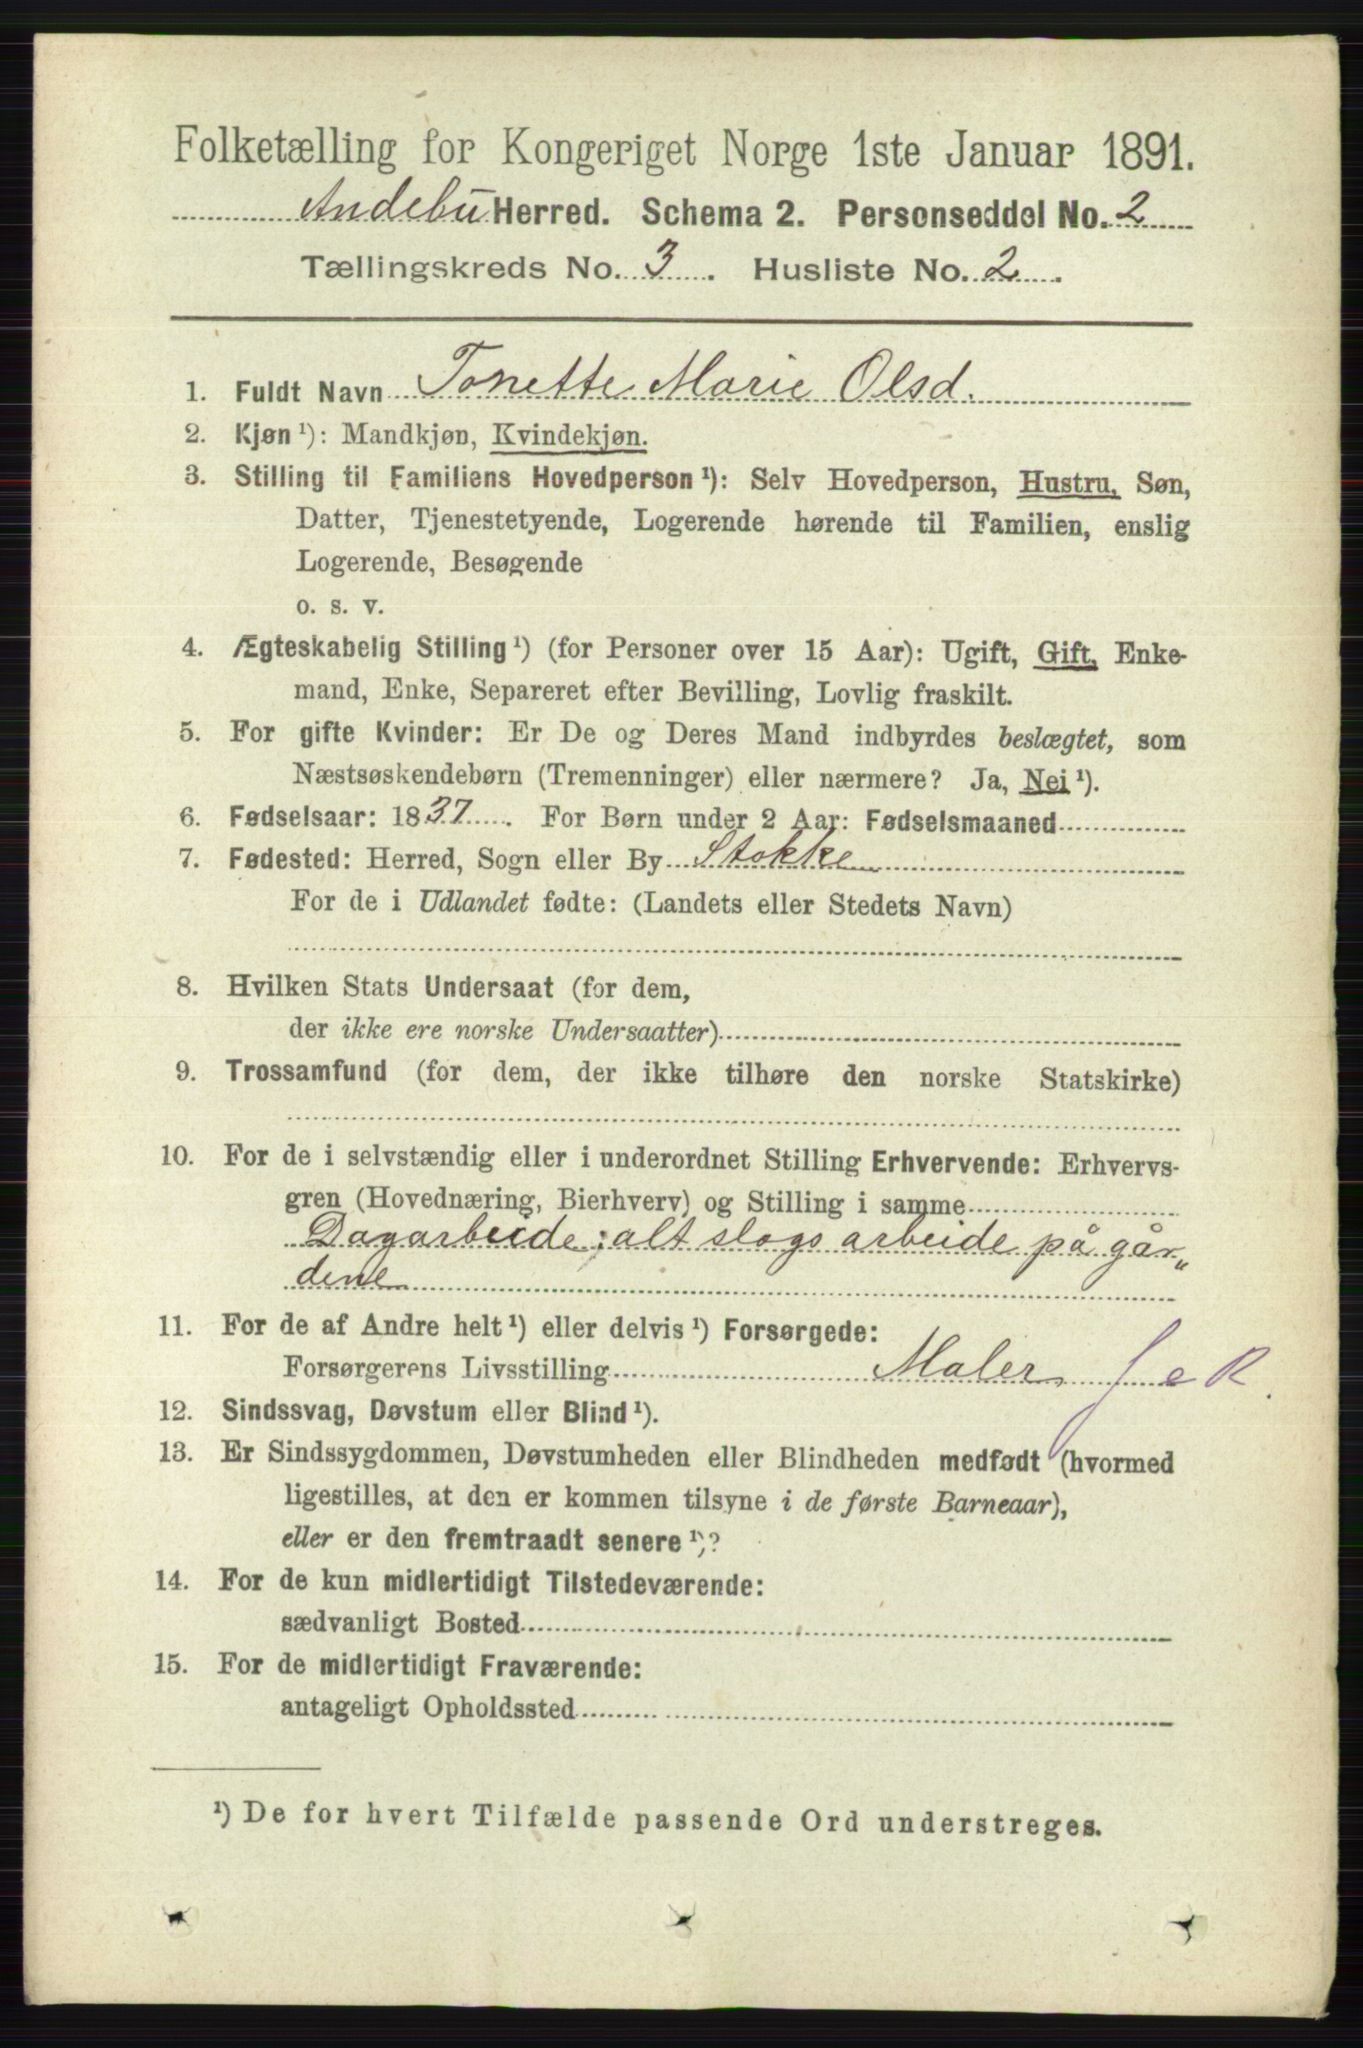 Folketælling for Kongeriget Norge 1ste Januar 1891.
Andebu Herred. Schema 2. Personseddel No. 2
Tællingskreds No. 3. Husliste No. 2.
1. Fuldt Navn Tonette Marie Olsd.
2. Kjøn ¹): Mandkjøn, Kvindekjøn.
3. Stilling til Familiens Hovedperson ¹): Selv Hovedperson, Hustru, Søn,
Datter, Tjenestetyende, Logerende hørende til Familien, enslig
Logerende, Besøgende
o. s. v.
4. Ægteskabelig Stilling ¹) (for Personer over 15 Aar): Ugift, Gift, Enke-
mand, Enke, Separeret efter Bevilling, Lovlig fraskilt.
5. For gifte Kvinder: Er De og Deres Mand indbyrdes beslægtet, som
Næstsøskendebørn (Tremenninger) eller nærmere? Ja, Nei ¹).
6. Fødselsaar: 1837. For Børn under 2 Aar: Fødselsmaaned
7. Fødested: Herred, Sogn eller By Stokke
For de i Udlandet fødte: (Landets eller Stedets Navn)
8. Hvilken Stats Undersaat (for dem,
der ikke ere norske Undersaatter)
9. Trossamfund (for dem, der ikke tilhøre den norske Statskirke)
10. For de i selvstændig eller i underordnet Stilling Erhvervende: Erhvervs-
gren (Hovednæring, Bierhverv) og Stilling i samme
Dagarbeide; alt slags arbeide på går„
dene
11. For de af Andre helt ¹) eller delvis ¹) Forsørgede:
Forsørgerens Livsstilling Maler
12. Sindssvag, Døvstum eller Blind ¹).
13. Er Sindssygdommen, Døvstumheden eller Blindheden medfødt (hvormed
ligestilles, at den er kommen tilsyne i de første Barneaar),
eller er den fremtraadt senere ¹)?
14. For de kun midlertidigt Tilstedeværende:
sædvanligt Bosted
15. For de midlertidigt Fraværende:
antageligt Opholdssted
¹) De for hvert Tilfælde passende Ord understreges.